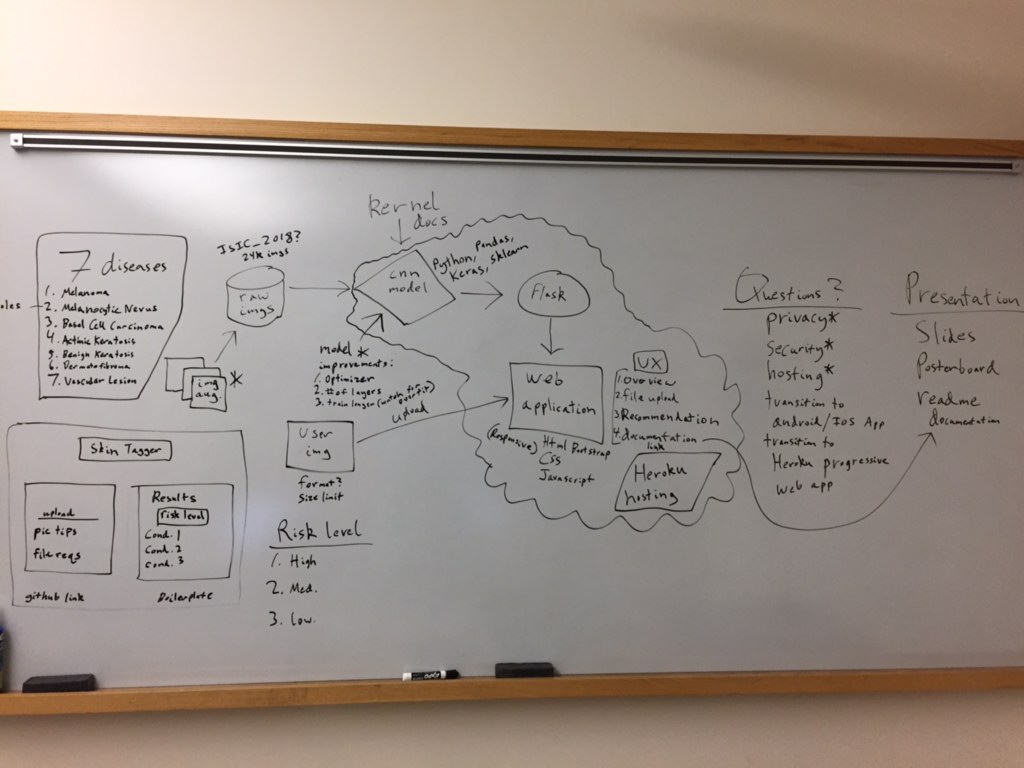 kernel
docs
ISIC_2018?
24k imgs
7 diseases
1. Melanoma
2. Melanocytic Nevus
3. Basal Cell Carcinoma
4. Actinic Keratosis
5. Benign Keratosis
6. Dermatofibroma
7. Vascular Lesion
oles
raw
imgs
img
aug. *
cnn
model
Python, pandas,
Keras, sklearn
Flask
model *
improvements:
1. Optimizer
2. # of layers
3. train longer
upload
User
img
format?
size limit
web
application
(Responsive) Html Bootstrap
CSS
Javascript
UX
1. Overview
2. file upload
3. Recommendation
4. documentation
link
Heroku
hosting
Skin Tagger
upload
pic tips
file reqs
github link
Results
risk level
Cond. 1
Cond. 2
Cond. 3
Boilerplate
Risk level
1. High
2. Med.
3. Low.
Questions?
privacy*
security*
hosting*
transition to
android/IOS App
transition to
Heroku progressive
web app
Presentation
Slides
Posterboard
readme
documentation
EXPO